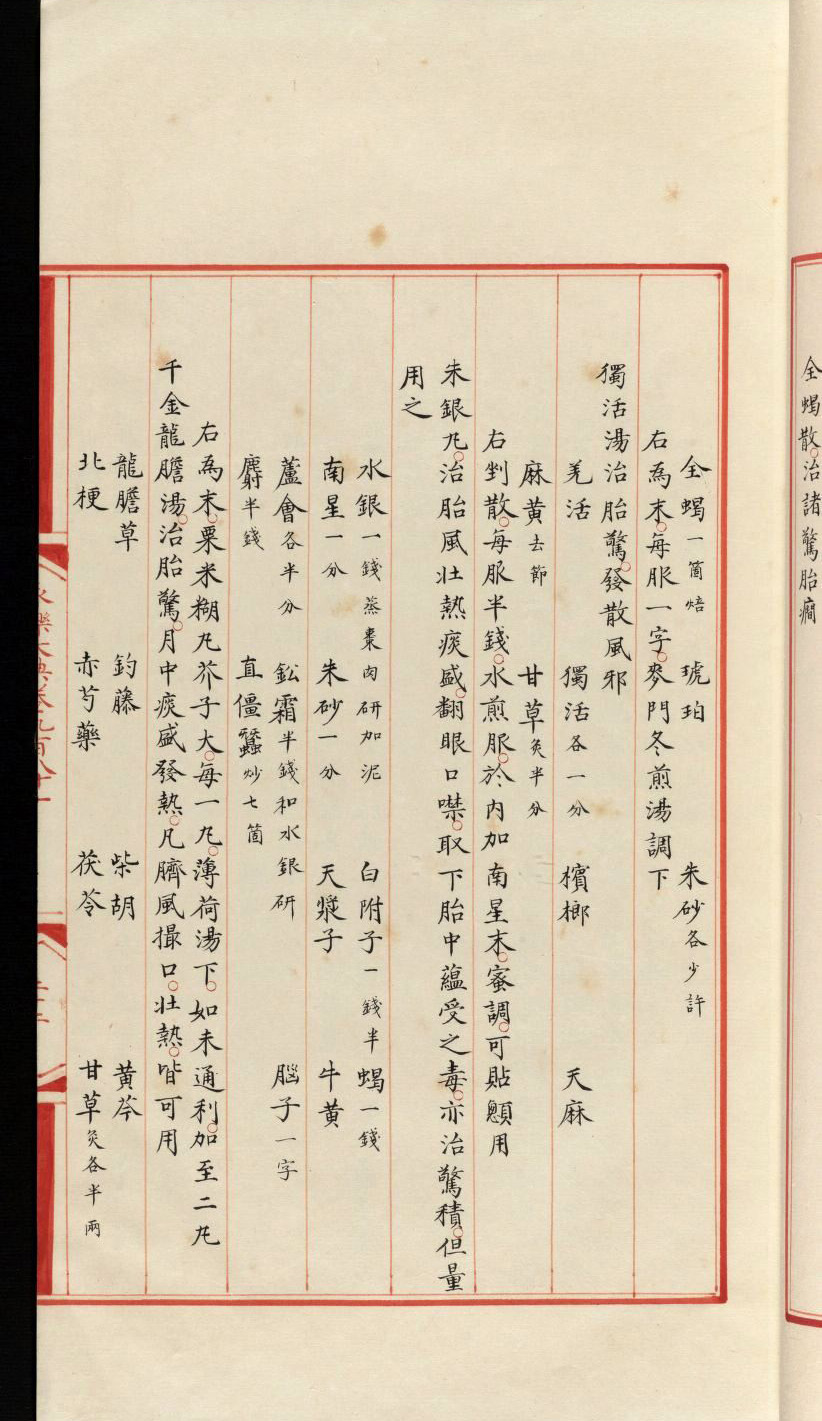 全蝎散治諸驚胎癎
全蝎一箇焙 琥珀 朱砂各少許
右為末每服一字麥門冬煎湯調下
獨活湯治胎驚發散風邪
羌活 獨活各一分 檳榔 天麻
麻黄去節 甘草炙半分
右剉散每服半錢水煎服於内加南星末蜜調可貼顖用
朱銀丸治胎風壯熱痰盛翻眼口噤取下胎中蘊受之毒亦治驚積但量
用之
水銀一錢蒸棗肉研加泥 白附子一錢半 蝎一錢
南星一分 朱砂一分 天漿子 牛黄
蘆會各半分 鈆霜半錢和水銀研 腦子一字
麝半錢 直僵蠶炒七箇
右為末粟米糊丸芥子大每一丸薄荷湯下如未通利加至二丸
千金龍膽湯治胎驚月中痰盛發熱凡臍風撮口壯熱皆可用
龍膽草 釣藤 柴胡 黄芩
北梗 赤芍藥 茯苓 甘草炙各半兩
永樂大典卷九百八十一